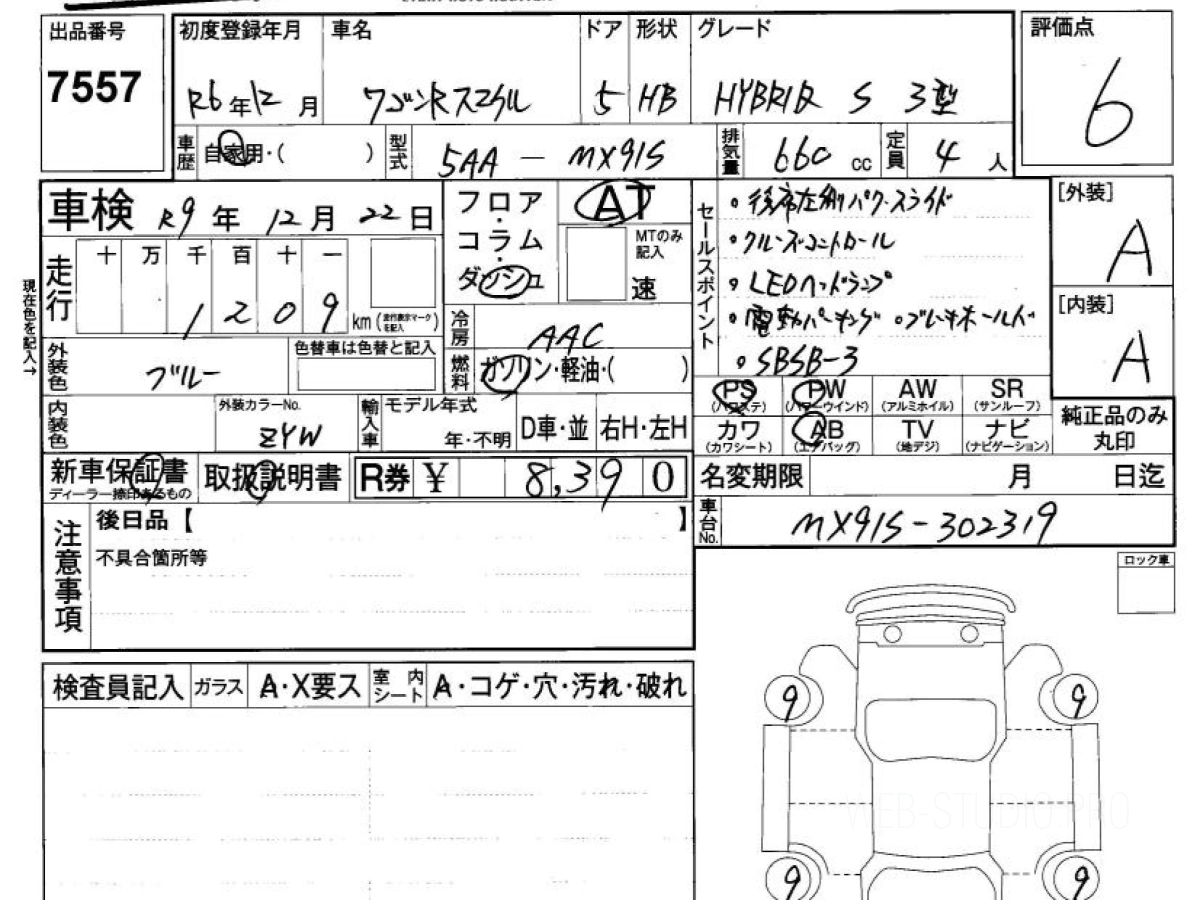 出品番号
7557
初度登録年月
R6年12月
車名
ワゴンRスマイル
ドア
5
形状
HB
グレード
HYBRID S 3型
評価点
6
車歴
自家用・( )
型式
5AA - MX91S
排気量
660 cc
定員
4 人
車検 R9年12月22日
フロア・コラム・ダッシュ
AT
MTのみ記入
速
セールスポイント
・後席左側パワースライド
・クルーズコントロール
・LEDヘッドランプ
・電動パーキング ・ブレーキホールド
・SBSB-3
[外装]
A
[内装]
A
現在色を記入→
走行
十万千百十一
1209 km
(走行表示マークを記入)
外装色
ブルー
色替車は色替と記入
冷房
AAC
燃料
ガソリン・軽油・( )
内装色
外装カラーNo.
ZYW
輸入車
モデル年式
年・不明
D車・並
右H・左H
PS
(パワステ)
PW
(パワーウインド)
AW
(アルミホイル)
SR
(サンルーフ)
カワ
(カワシート)
AB
(エアバッグ)
TV
(地デジ)
ナビ
(ナビゲーション)
純正品のみ丸印
新車保証書
ディーラー捺印あるもの
取扱説明書
R券 ¥ 8,390
名変期限 月 日迄
車台No.
MX91S-302319
注意事項
後日品【 】
不具合箇所等
ロック車
検査員記入
ガラス
A・X要ス
室内シート
A・コゲ・穴・汚れ・破れ
9
9
WEB-STUDIO.PRO
9
9